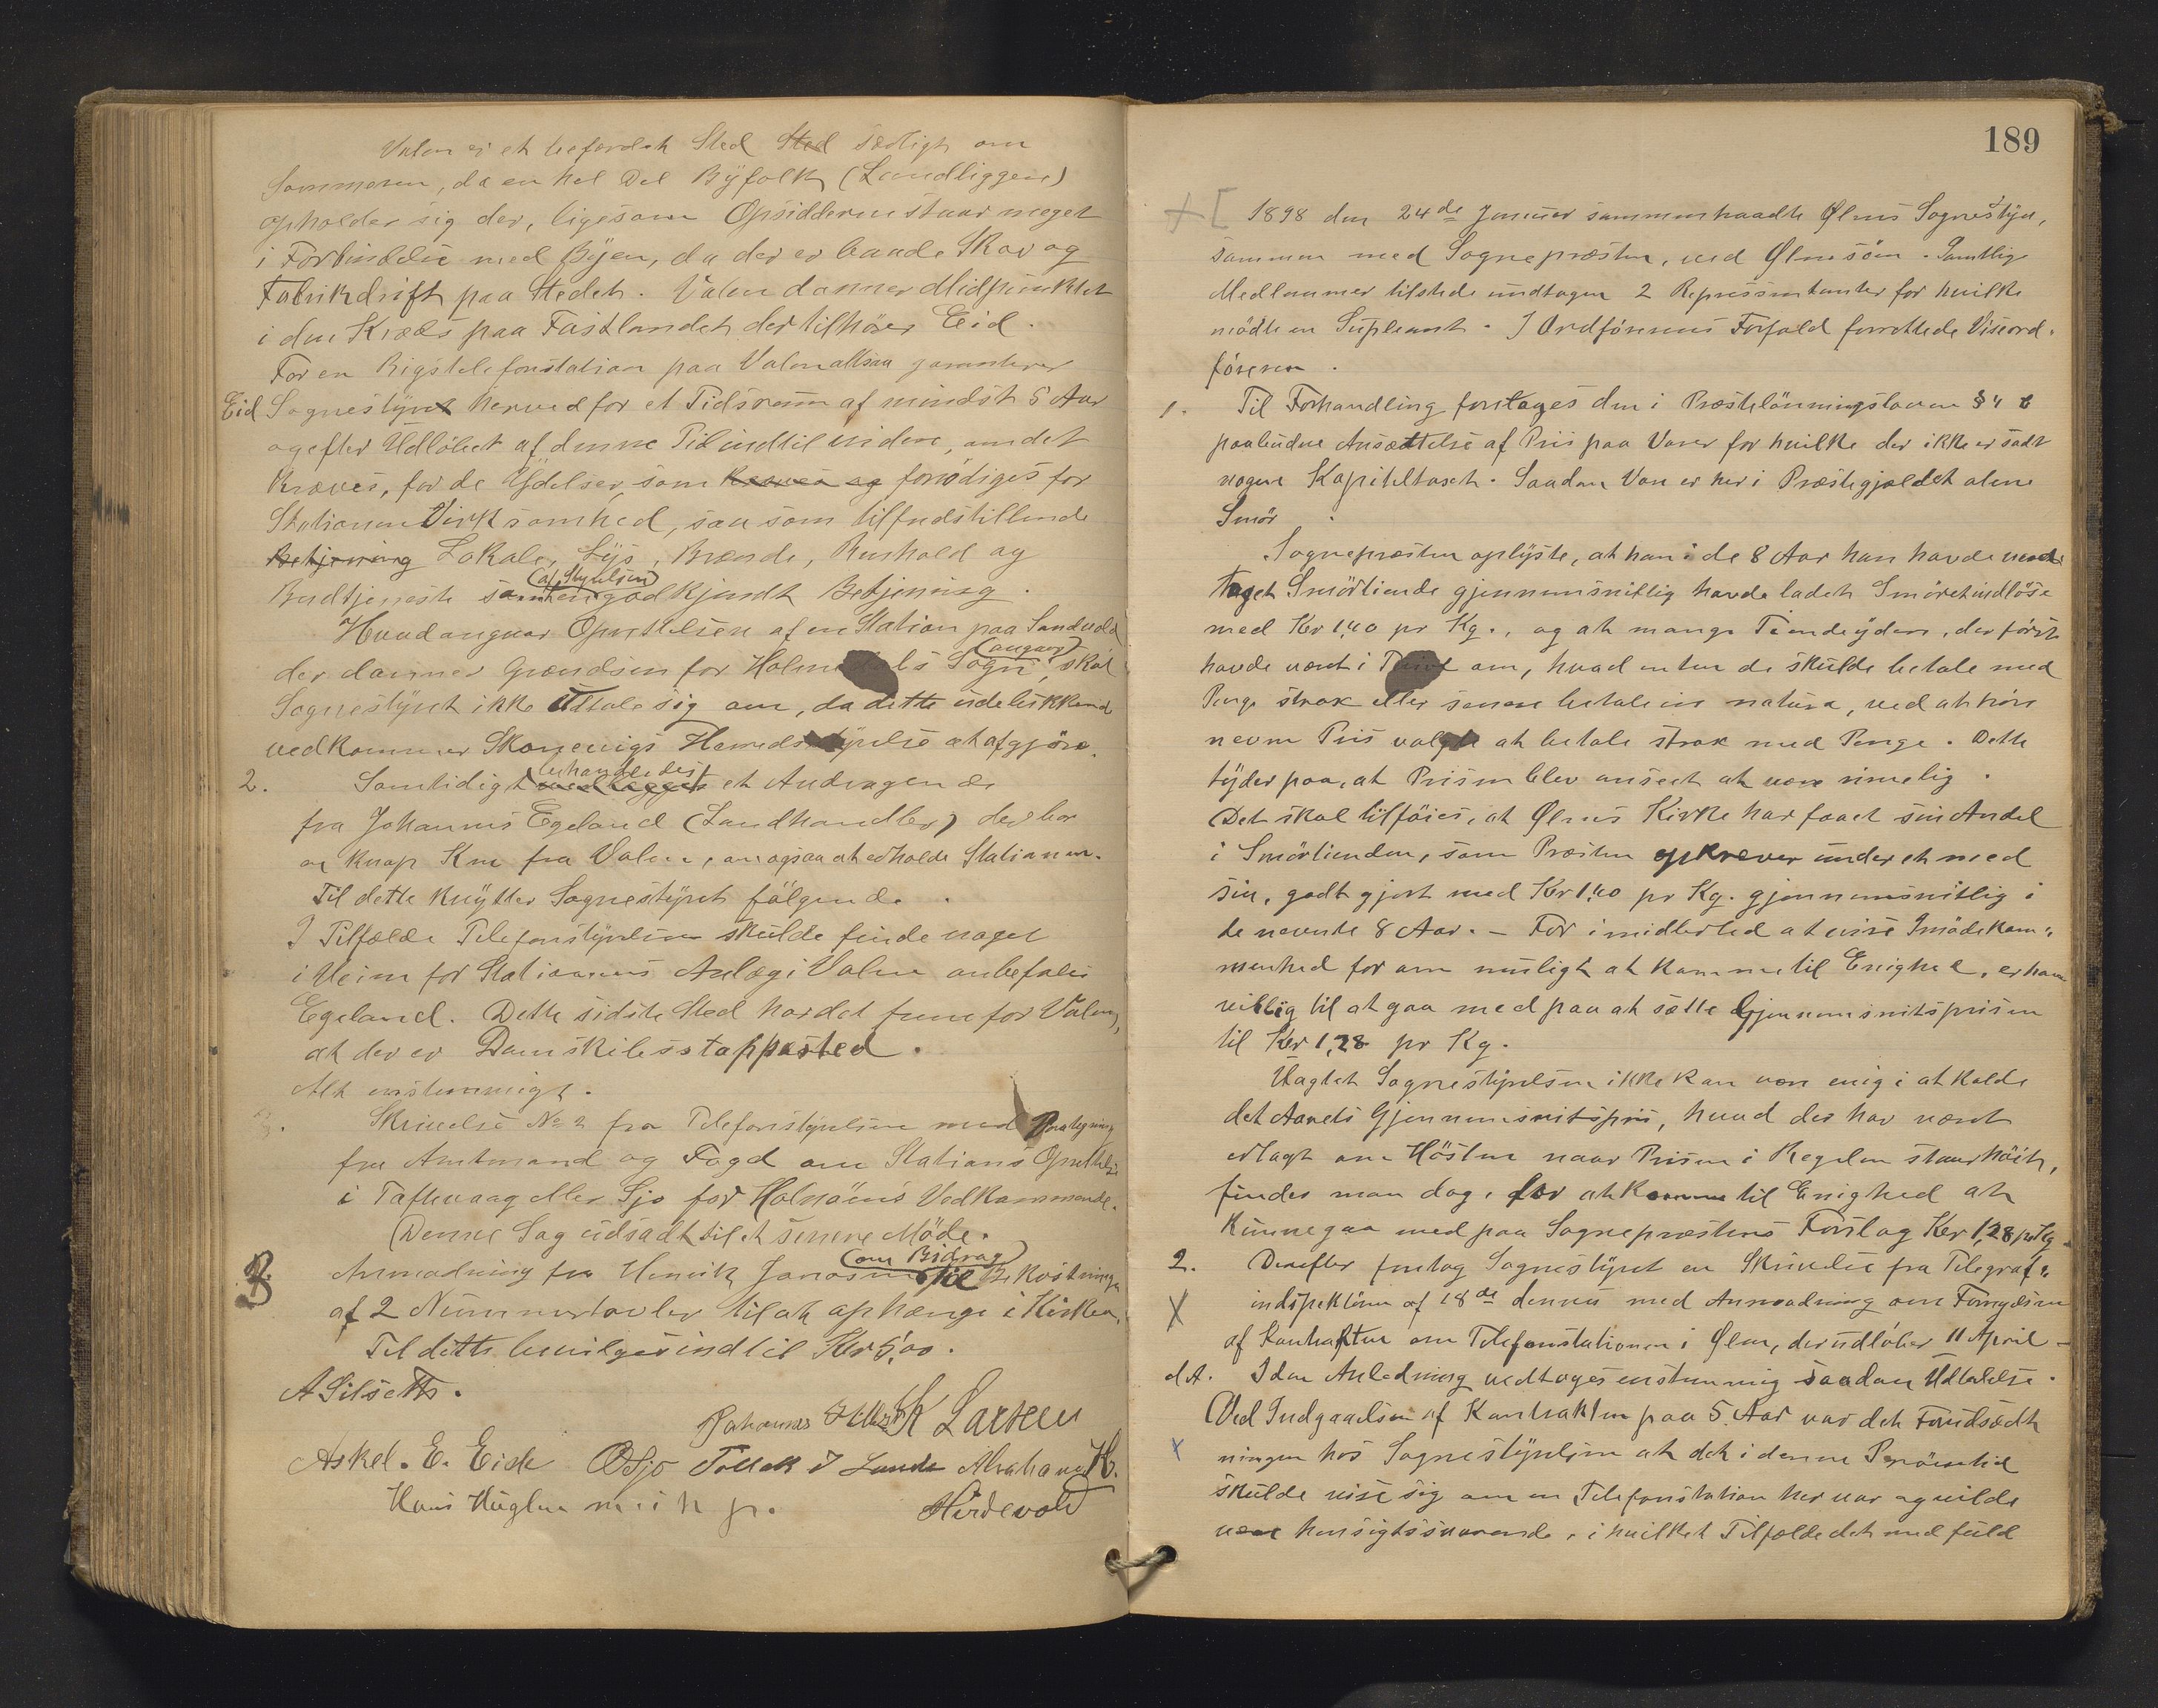 Valen er et befærdet Sted Sted særligt om
Sommeren, da en hel Del Byfolk (Landliggere)
opholder sig der, ligesom Opsidderne staar meget
i Forbindelse med Byen, da der er baade Skov og
Fabrikdrift paa Stedet. Valen danner Midpunktet
i den Kreds paa Fastlandet der tilhører Eid.
For en Rigstelefonstation paa Valen altsaa garanterer
Eid Sognestyret herved for et Tidsrum af mindst 5 Aar
og efter Udløbet af denne Tid indtil videre, om det
kræves, for de Ydelser, som kræves og fornødiges for
Stationens Virksomhed, saasom tilfredstillende
Betjening Lokale, Lys, Brænde, Renhold og
(af Styrelsen)
Budtjeneste samt en godkjendt Betjening.
Hvad angaar Oprettelsen af en Station paa Sandvold
(angaar)
der danner Grændsen for Holmedals Sogn, skal
Sognestyret ikke udtale sig om, da dette udelukkend
vedkommer Skonevigs Herredsstyrelse at afgjøre.
behandledes
2. Samtidigt vedlægges et Andragende
fra Johannes Egeland (Landhandler) der bor
en knap Km fra Valen, om ogsaa at erholde Stationen.
Til dette knytter Sognestyret følgende.
I Tilfælde Telefonstyrelsen skulde finde noget
i Veien for Stationens Anlæg i Valen anbefales
Egeland. Dette sidste Sted har det frem for Valen,
at der er Damskibsstoppested.
Alt enstemmigt.
Skrivelse No 2 fra Telefonstyrelsen med Paategning
fra Amtmand og Fogd om Stations Oprettelse
i Toftevaag eller Sjo for Halsnøens Vedkommende.
(Denne Sag udsadt til et senere Møde.
(om Bidrag)
3. Anmodning fra Henrik Jonassen til Bekostninge
af 2 Nummertavler til at ophænge i Kirken.
Til dette bevilges indtil Kr 5,00.
A Silseth.
Johannes K Larsen
Askel. E. Eide O Sjo Tollak T Lunde Abraham K.
Hans Huglen m i h p. Hirdevold
189
1898 den 24de Januar sammenkaadte Ølens Sognestyre,
sammen med Sognepræsten, ved Ølensøen. Samtlige
Medlemmer tilstede undtagen 2 Repræsentanter for hvilke
mødte en Supleant. I Ordførerens Forfald forrettede Viseord-
føreren.
1. Til Forhandling foretages den i Præstelønningsloven § 4
paabudne Ansættelse af Pris paa Varer for hvilke der ikke er sadt
nogen Kapiteltaxt. Saadan Vare er her i Præstegjældet alene
Smør.
Sognepræsten oplyste, at han i de 8 Aar han havde mod-
taget Smørtiende gjennemsnitlig havde ladet Smøret indløse
med Kr 1,40 pr Kg., og at mange Tiendeydere, der først
havde været i Tvivl om, hvad enten de skulde betale med
Penge strax eller senere betale in natura, ved at høre
nevne Pris valgte at betale strax med Penge. Dette
tyder paa, at Prisen blev anseet at være rimelig.
(Det skal tilføies, at Ølens Kirke har faaet sin Andel
i Smørtienden, som Præsten opkræver under et med
sin, godtgjort med Kr 1,40 pr Kg. gjennemsnitlig i
de nevnte 8 Aar. – For imidlertid at vise Imødekom-
menhed for om muligt at komme til Enighed, er han
villig til at gaa med paa at sætte Gjennemsnitsprisen
til Kr 1,28 pr Kg.
Uagtet Sognestyrelsen ikke kan være enig i at kalde
det Aarets Gjennemsnitspris, hvad der har været
erlagt om Høsten naar Prisen i Regelen staar høit,
finder man dog, for at komme til Enighed at
kunne gaa med paa Sognepræstens Forslag Kr 1,28 pr Kg.
2. Derefter foretog Sognestyret en Skrivelse fra Telegraf-
indspektøren af 18de dennes med Anmodning om Fornyelsen
af Kontrakten om Telefonstationen i Ølen, der udløber 11 April
d.A. I den Anledning vedtoges enstemmig saadan Udtalelse.
(Ved Indgaaelsen af Kontrakten paa 5 Aar var det Forudsædt-
ningen hos Sognestyrelsen at det i denne Prøvetid
skulde vise sig om en Telefonstation her var og vilde
være hensigtssvarende, i hvilket Tilfælde det med fuld